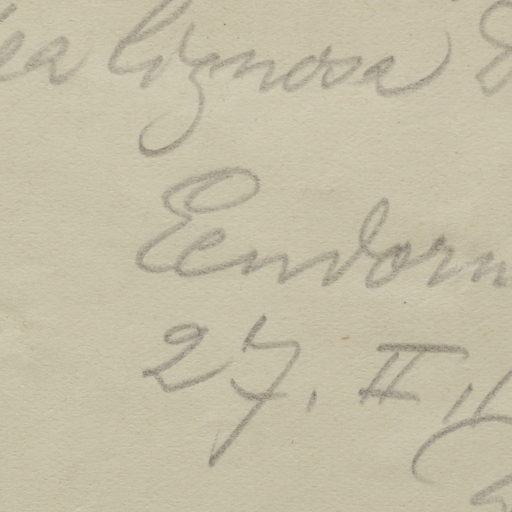 ea lignosa
Eendorn
27. II.